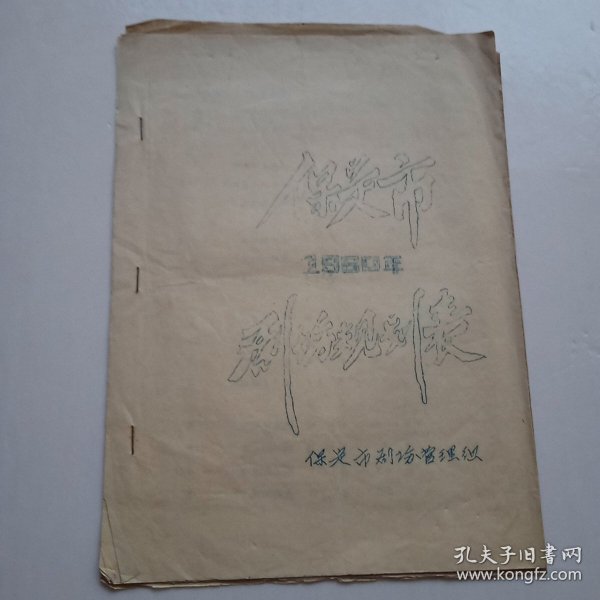 保定市
1980年
剧场规划表
保定市剧场管理组
孔夫子旧书网
www.kongfz.com